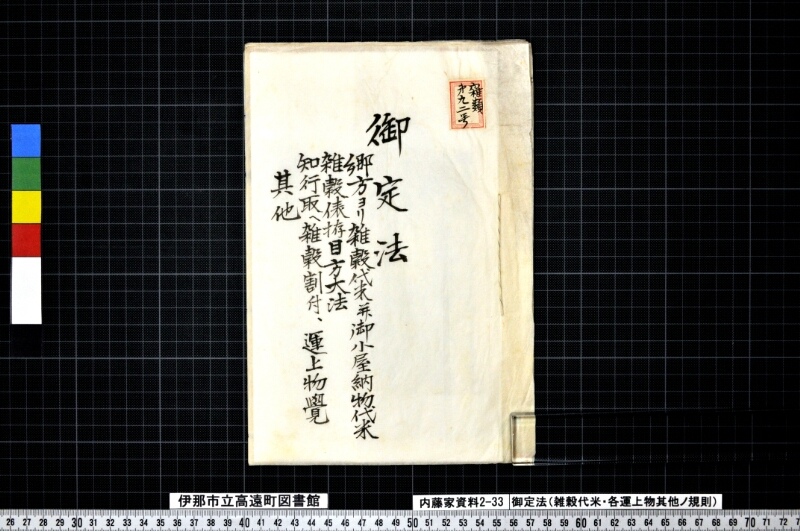 雑類
第九二号
御定法
郷方ヨリ雑穀代米并御小屋納物代米
雑穀俵拵目方大法
知行取ヘ雑穀割付、運上物覺
其他
伊那市立高遠町図書館
内藤家資料2-33
御定法(雑穀代米・各運上物其他ノ規則)
26 27 28 29 30 31 32 33 34 35 36 37 38 39 40 41 42 43 44 45 46 47 48 49 50 51 52 53 54 55 56 57 58 59 60 61 62 63 64 65 66 67 68 69 70 71 72